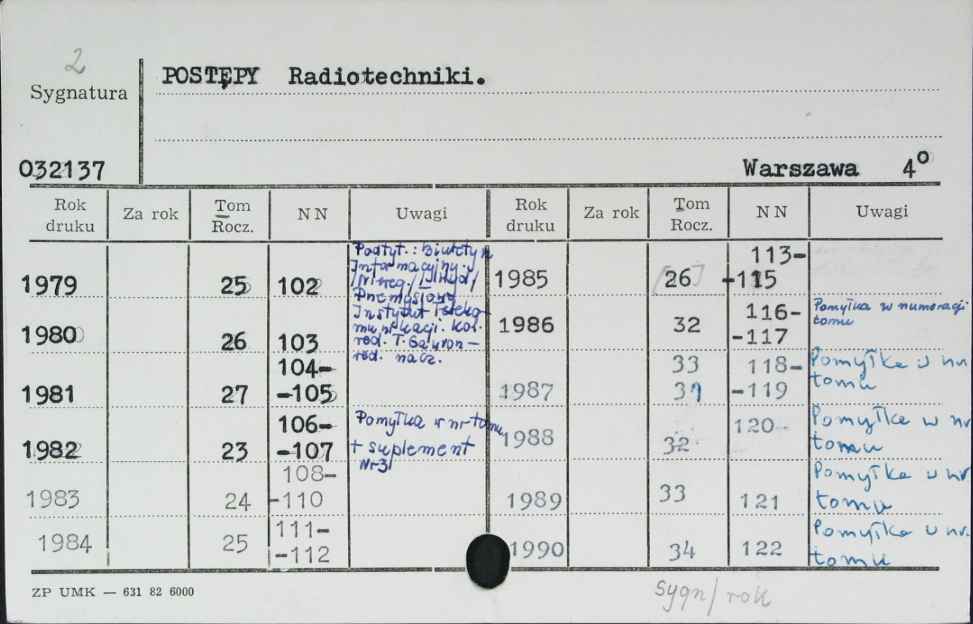 2
POSTĘPY Radiotechniki.
Sygnatura
032137
Warszawa 4°
Rok druku Za rok Tom Rocz. NN Uwagi Rok druku Za rok Tom Rocz. NN Uwagi
1979 25 102
Podtyt.: Biuletyn
Informacyjny.
Przemysłowy
Instytut Teleko-
munikacji. Kol.
red. T.
red. nacz.
1980 26 103
1981 27 104-
-105
1982 23 106-
-107
Pomyłka w nr tomu
+ suplement
Nr 3
1983 24 108-
-110
1984 25 111-
-112
1985 [26] 113-
-115
1986 32 116-
-117
Pomyłka w numeracji
tomu
1987 33 118-
31 -119
Pomyłka w nr
tomu
1988 32 120-
Pomyłka w nr
tomu
1989 33 121
Pomyłka w nr
tomu
1990 34 122
Pomyłka w nr.
tomu
ZP UMK — 631 82 6000
sygn/rok